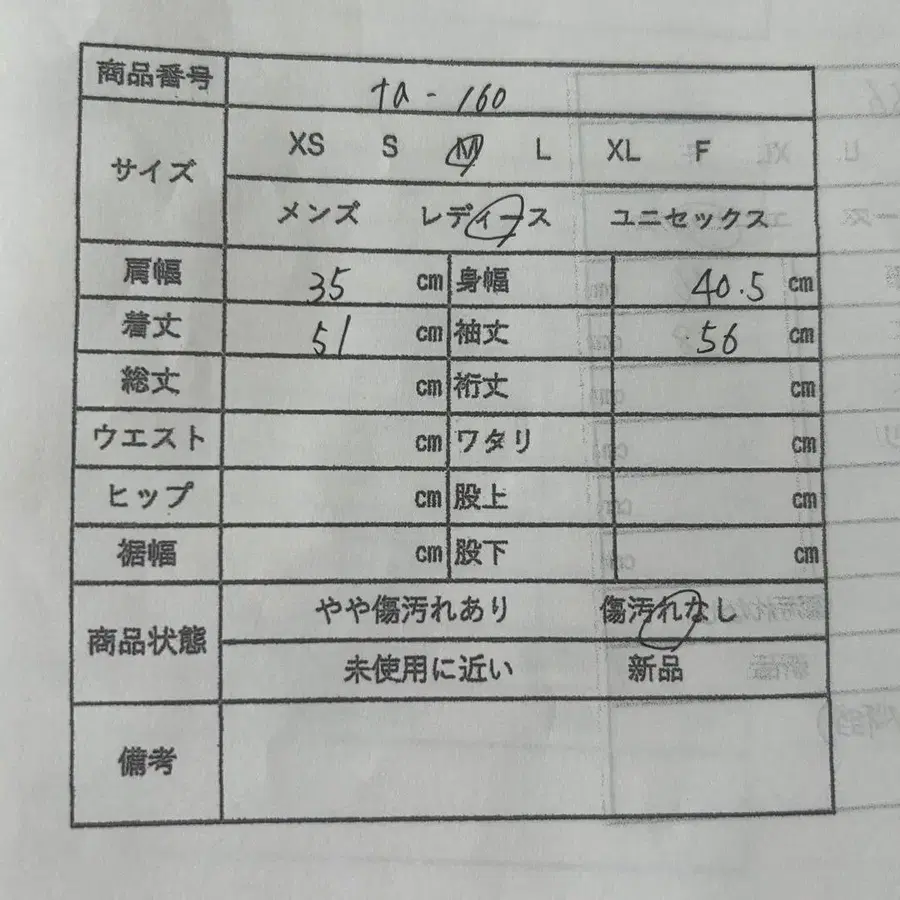 商品番号 ta - 160
サイズ XS S M L XL F
メンズ レディース ユニセックス
肩幅 35 cm 身幅 40.5 cm
着丈 51 cm 袖丈 56 cm
総丈 cm 裄丈 cm
ウエスト cm ワタリ cm
ヒップ cm 股上 cm
裾幅 cm 股下 cm
商品状態 やや傷汚れあり 傷汚れなし
未使用に近い 新品
備考